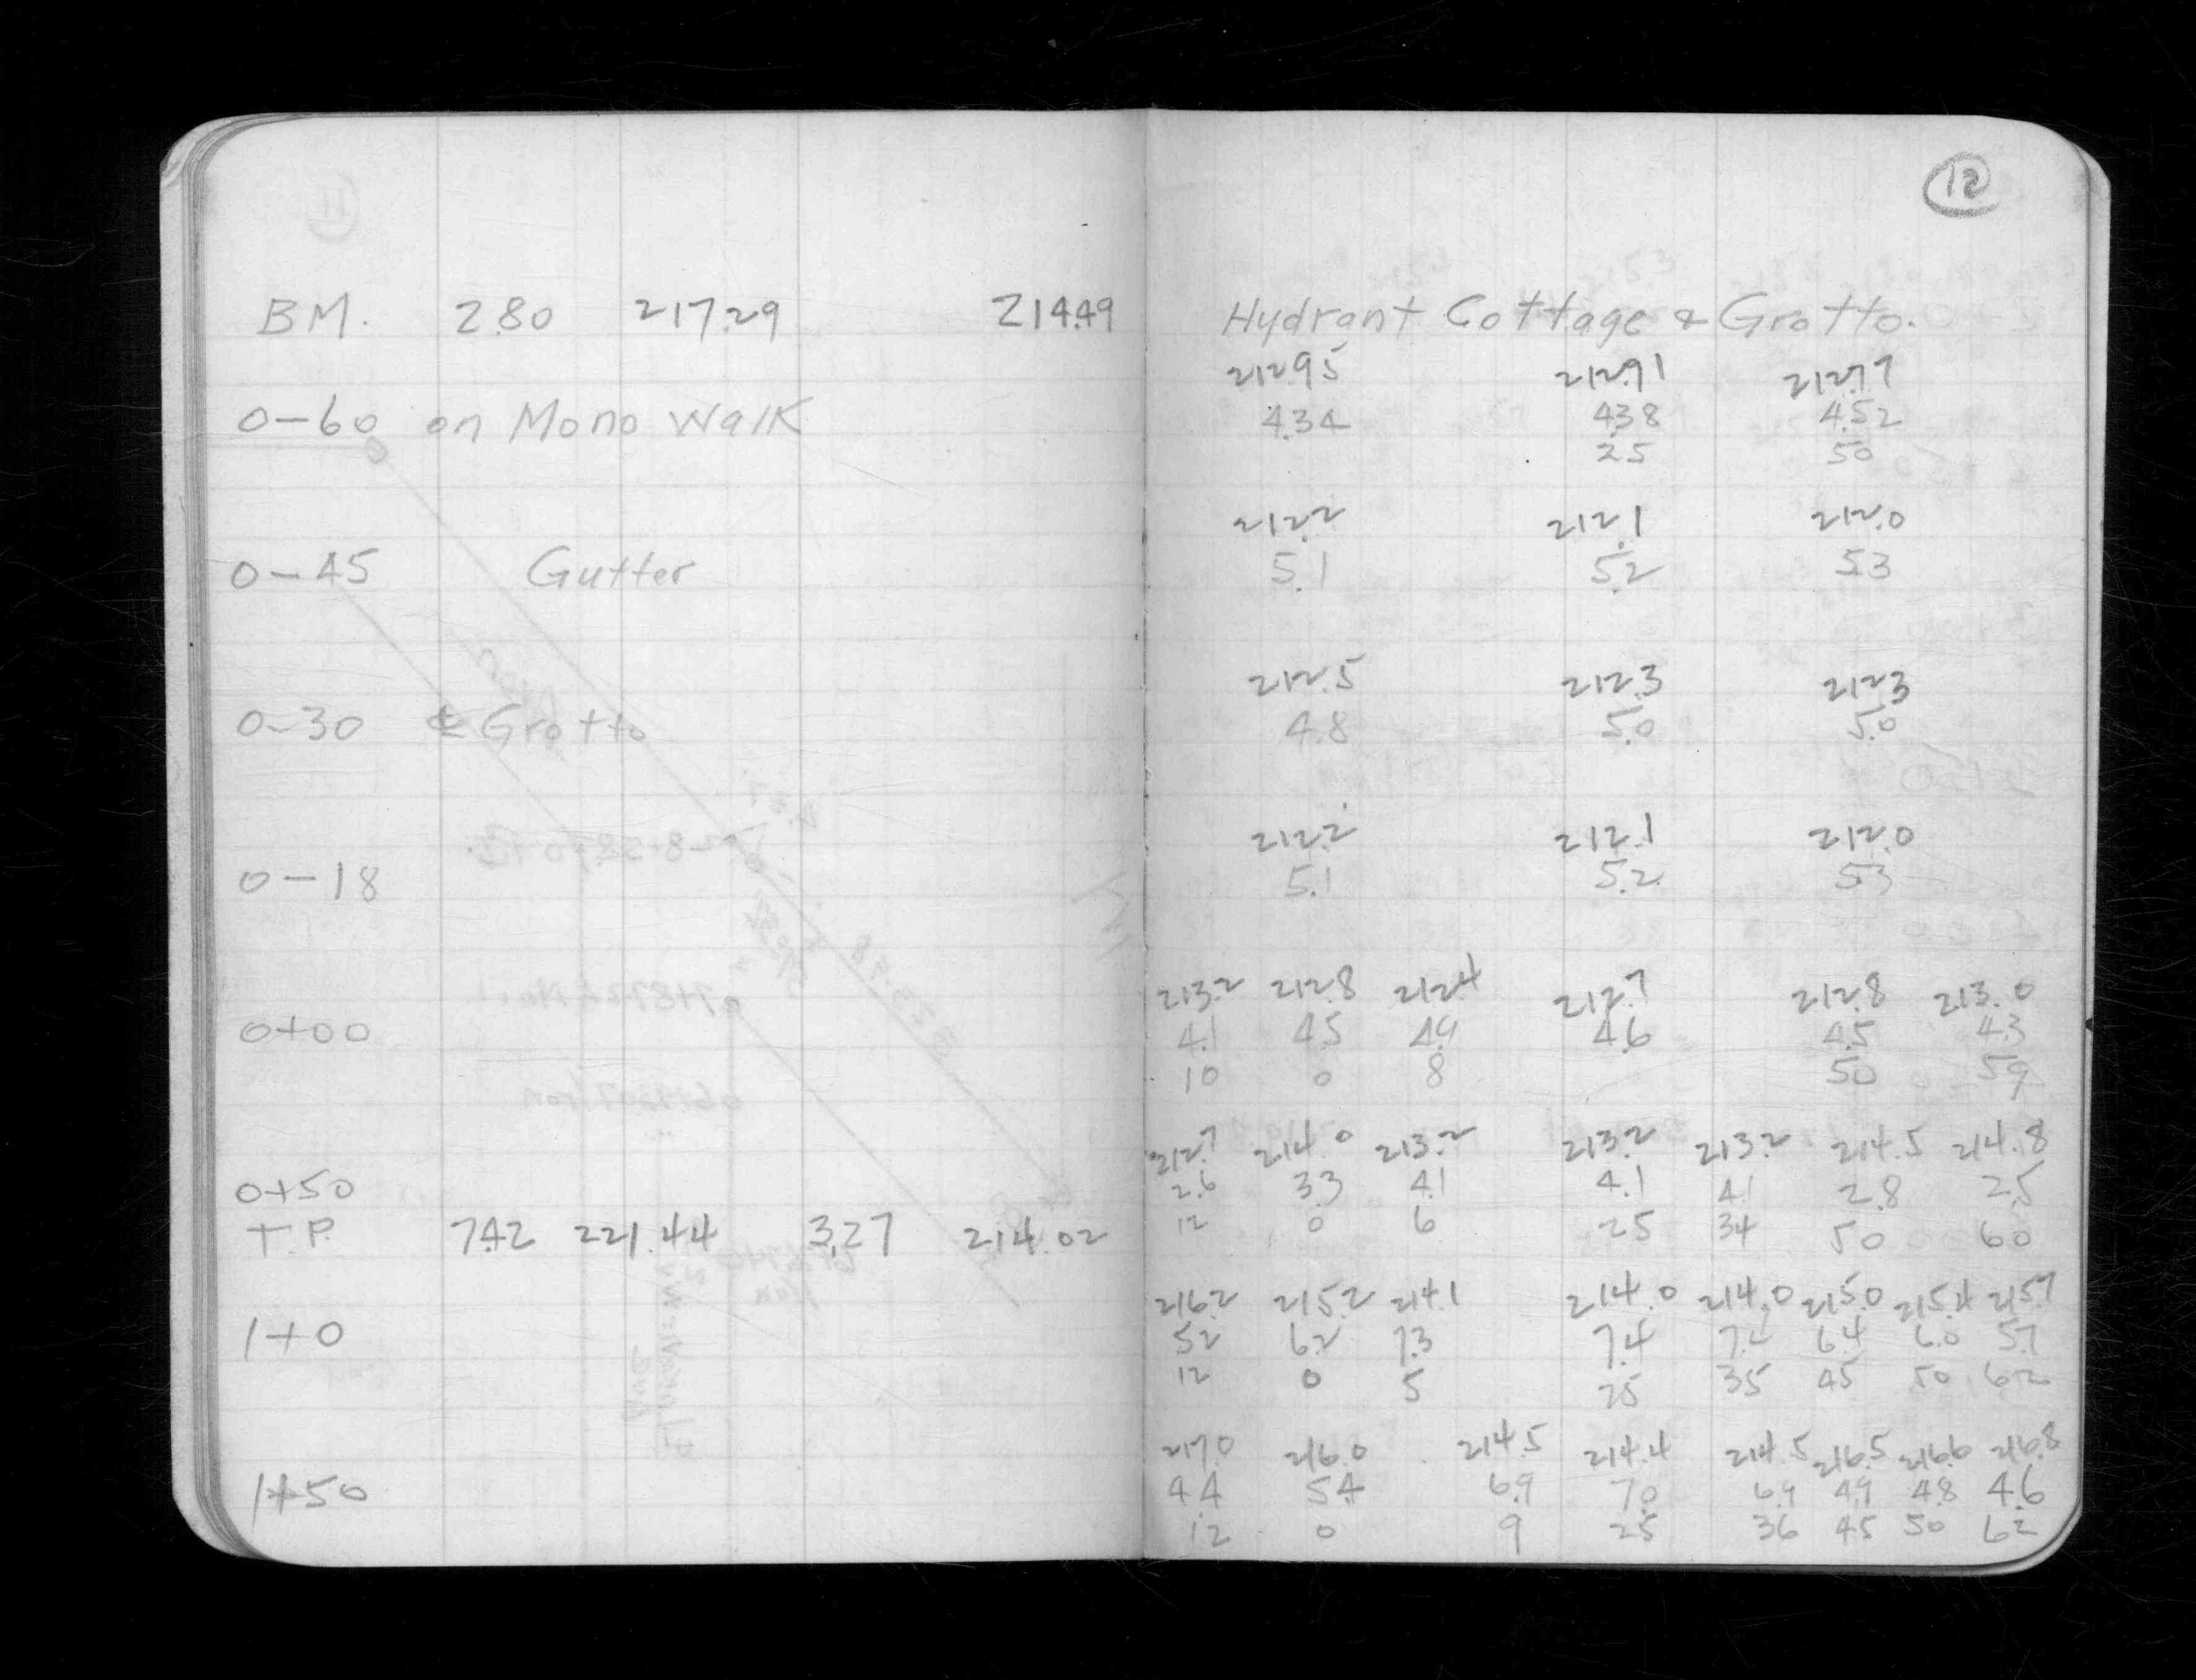 12
BM. 2.80 217.29 214.49 Hydrant Cottage & Grotto.
212.95 212.91 212.77
0-60 on Mono Walk 4.34 4.38 4.52
25 50
212.2 212.1 212.0
0-45 Gutter 5.1 5.2 5.3
212.5 212.3 212.3
0-30 ℄ Grotto 4.8 5.0 5.0
212.2 212.1 212.0
0-18 5.1 5.2 5.3
213.2 212.8 212.4 212.7 212.8 213.0
0+00 4.1 4.5 4.9 4.6 4.5 4.3
10 0 8 50 59
212.7 214.0 213.2 213.2 213.2 214.5 214.8
0+50 2.6 3.3 4.1 4.1 4.1 2.8 2.5
T.P. 7.42 221.44 3.27 214.02 12 0 6 25 34 50 60
216.2 215.2 214.1 214.0 214.0 215.0 215.4 215.7
1+0 5.2 6.2 7.3 7.4 7.4 6.4 6.0 5.7
12 0 5 25 35 45 50 62
217.0 216.0 214.5 214.4 214.5 216.5 216.6 216.8
1+50 4.4 5.4 6.9 7.0 6.9 4.9 4.8 4.6
12 0 9 25 36 45 50 62